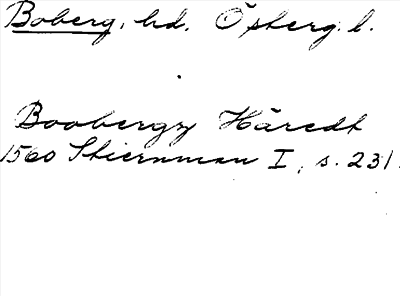 Boberg, hd. Östberg. l.
Boobergz Häredt
1560 Stiernman I, s. 231.